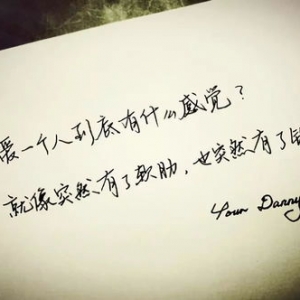 爱一个人到底有什么感觉？
就像突然有了软肋，也突然有了
Your Danny